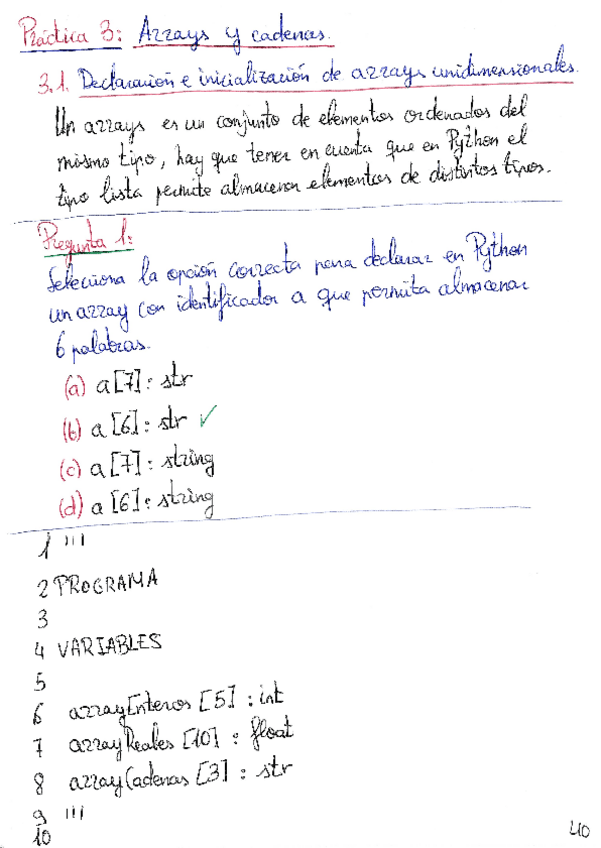 Práctica 3: Arrays y cadenas.
3.1. Declaración e inicialización de arrays unidimensionales.
Un arrays es un conjunto de elementos ordenados del
mismo tipo, hay que tener en cuenta que en Python el
tipo lista permite almacenar elementos de distintos tipos.
Pregunta 1:
Selecciona la opción correcta para declarar en Python
un array con identificador a que permita almacenar
6 palabras.
(a) a[7]: str
(b) a[6]: str ✓
(c) a[7]: string
(d) a[6]: string
1 '''
2 PROGRAMA
3
4 VARIABLES
5
6 arrayEnteros [5] : int
7 arrayReales [10] : float
8 arrayCadenas [3] : str
9 '''
10
40